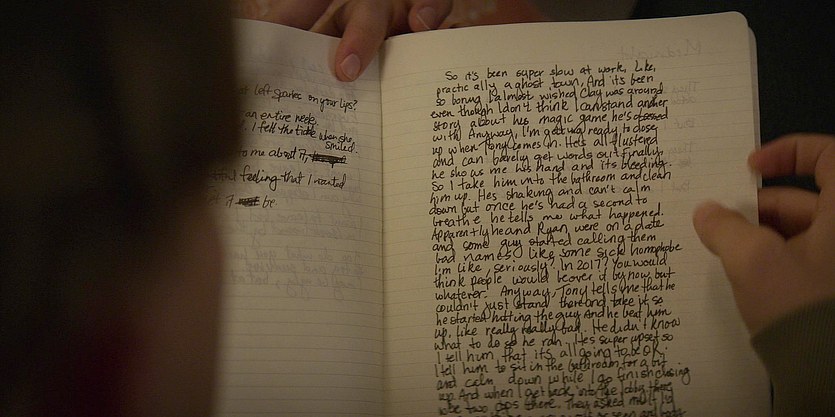 left sparks on your lips?
an entire
I felt the tide when she
smiled.
to me about it,
feeling that I wanted
be
So it's been super slow at work, like,
practically a ghost town. And it's been
so boring I almost wished Clay was around
even though I don't think I can stand another
story about his magic game he's obsessed
with. Anyway, I'm getting ready to close
up when Tony comes in. He's all flustered
and can barely get words out. Finally,
he shows me his hand and its bleeding.
So I take him into the bathroom and clean
him up. He's shaking and can't calm
down but once he's had a second to
breathe he tells me what happened.
Apparently he and Ryan, were on a date
and some guy started calling them
bad names, like some sick homophobe
I'm like, seriously? In 2017? You would
think people would be over it by now, but
whatever. Anyway, Tony tells me that he
couldn't just stand there and take it so
he started hitting the guy And he beat him
up, like really really bad. He didn't know
what to do so he ran. He's super upset so
I tell him that it's all going to be OK.
I tell him to sit in the bathroom for a bit
and calm down while I go finish closing
up. And when I get back into the lobby there
be two cops there. They asked me if I'd